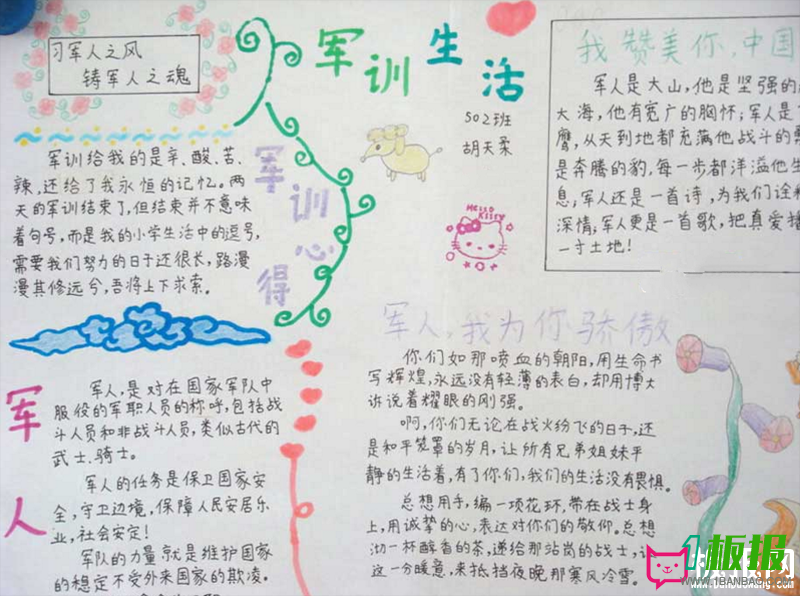 习军人之风
铸军人之魂
军训生活
502班
胡天柔
军训给我的是辛、酸、苦、
辣,还给了我永恒的记忆。两
天的军训结束了,但结束并不意味
着句号,而是我的小学生活中的逗号,
需要我们努力的日子还很长,路漫
漫其修远兮,吾将上下求索。
军训心得
HELLO
KITTY
我赞美你,中国
军人是大山,他是坚强的
大海,他有宽广的胸怀;军人是
鹰,从天到地都充满他战斗的
是奔腾的豹,每一步都洋溢他生
息;军人还是一首诗,为我们诠
深情;军人更是一首歌,把真爱播
一寸土地!
军人
军人,是对在国家军队中
服役的军职人员的称呼,包括战
斗人员和非战斗人员,类似古代的
武士.骑士。
军人的任务是保卫国家安
全,守卫边境,保障人民安居乐
业,社会安定!
军队的力量就是维护国家
的稳定不受外来国家的欺凌。
军人,我为你骄傲
你们如那喷血的朝阳,用生命书
写辉煌,永远没有轻薄的表白,却用博大
诉说着耀眼的刚强。
啊,你们无论在战火纷飞的日子,还
是和平笼罩的岁月,让所有兄弟姐妹平
静的生活着,有了你们,我们的生活没有畏惧。
总想用手,编一项花环,带在战士身
上,用诚挚的心,表达对你们的敬仰。总想
沏一杯醇香的茶,递给那站岗的战士,让
这一分暖意,来抵挡夜晚那寒风冷雪。
1板报
WWW.1BANBAO.COM